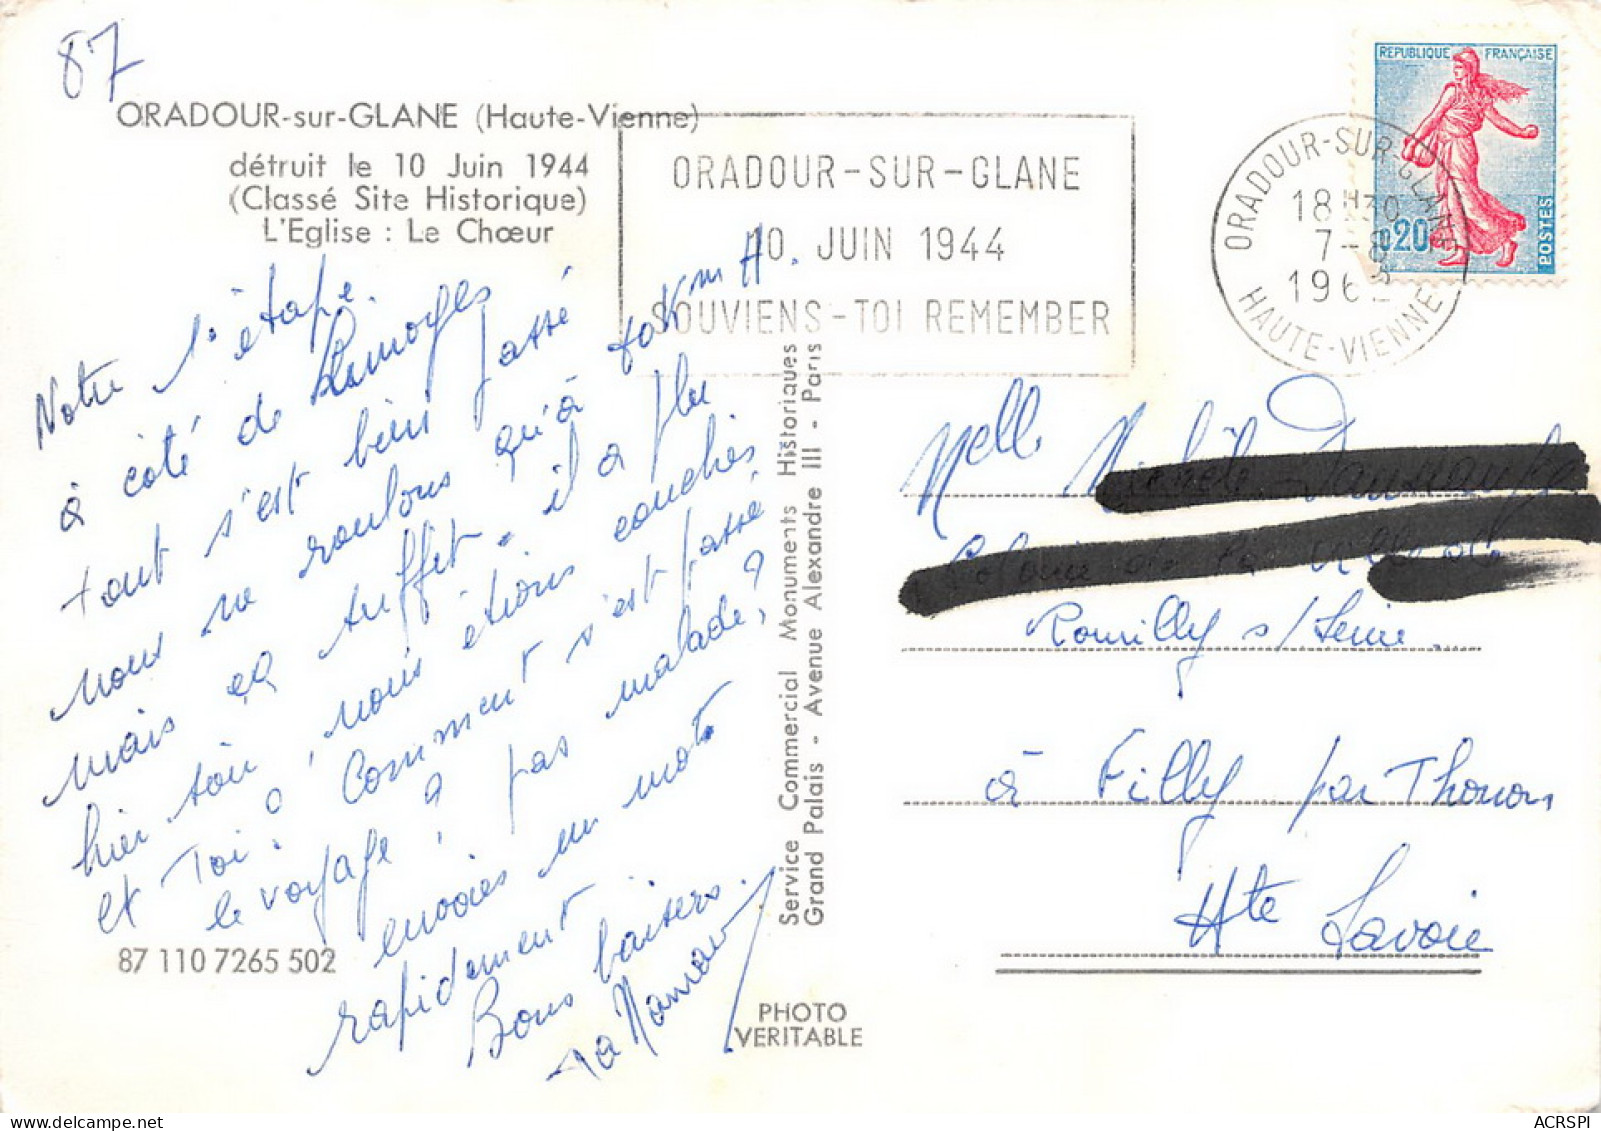 87
ORADOUR-sur-GLANE (Haute-Vienne)
détruit le 10 Juin 1944
(Classé Site Historique)
L'Eglise : Le Chœur
ORADOUR-SUR-GLANE
10 JUIN 1944
SOUVIENS-TOI REMEMBER
ORADOUR-SUR-GLANE
18 H30
7-8
196
HAUTE-VIENNE
REPUBLIQUE FRANÇAISE
0,20
POSTES
Notre 1° étape.
à côté de Limoges
tout s'est bien passé
nous ne roulons qu'à 60 Km H.
mais ça suffit. il a plu
hier soir, nous étions couchés
et Toi ? Comment s'est passé
le voyage ? pas malade ?
envoies un mot
rapidement
Bons baisers.
Ta Maman
Melle Michèle
Colonie de la Ville de
Romilly s/Seine
à Filly par Thonon
Hte Savoie
Service Commercial Monuments Historiques
Grand Palais - Avenue Alexandre III - Paris
87 110 7265 502
PHOTO
VERITABLE
delcampe.net
ACRSPI